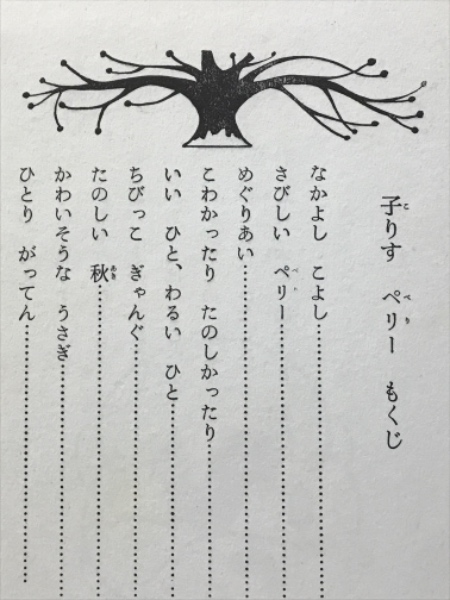 子りす ペリー もくじ
なかよし こよし
さびしい ペリー
めぐりあい
こわかったり たのしかったり
いい ひと、わるい ひと
ちびっこ ぎゃんぐ
たのしい 秋
かわいそうな うさぎ
ひとり がってん